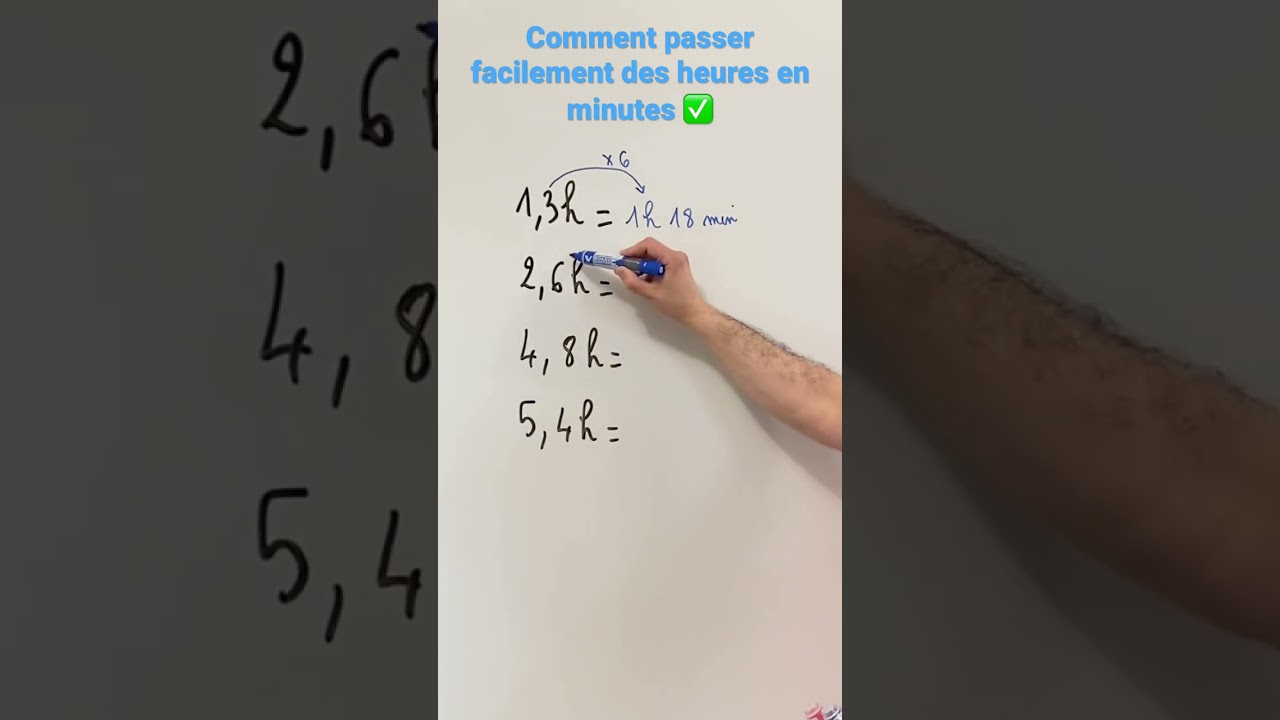 Comment passer
facilement des heures en
minutes ✅
x 6
1,3h = 1h 18 min
2,6h =
4,8h =
5,4h =
2,6h
4,8
5,4